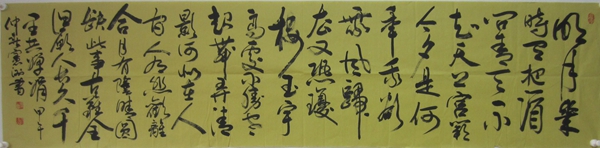 明月幾
時有把酒
問青天不
知天上宮闕
今夕是何
年我欲
乘風歸
去又恐瓊
樓玉宇
高處不勝寒
起舞弄清
影何似在人
間人有悲歡離
合月有陰晴圓
缺此事古難全
但願人長久千
里共嬋娟甲午
仲秋書